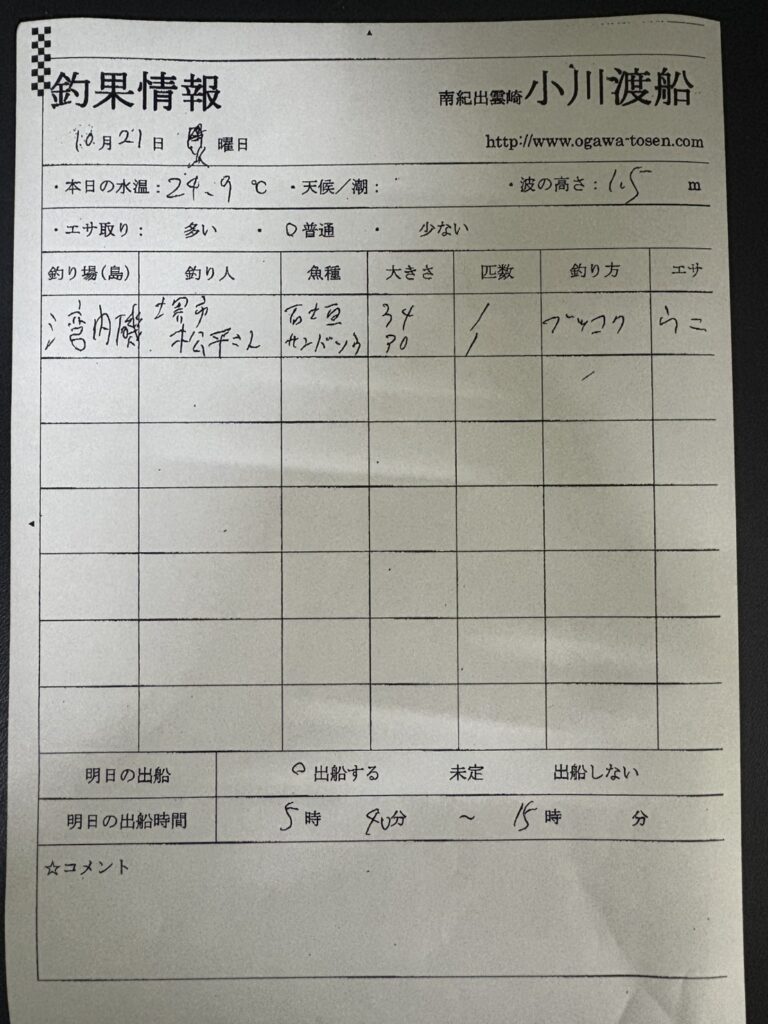 釣果情報 南紀出雲崎小川渡船
10月21日 火曜日 http://www.ogawa-tosen.com
・本日の水温：24.9 ℃ ・天候／潮： ・波の高さ：1.5 m
・エサ取り： 多い ・ ○普通 ・ 少ない
釣り場(島) 釣り人 魚種 大きさ 匹数 釣り方 エサ
湾内磯 堺市 石垣 34 1 ブッコク ウニ
松平さん サンバソウ 30 1
明日の出船 ○出船する 未定 出船しない
明日の出船時間 5時 40分 ～ 15時 分
☆コメント